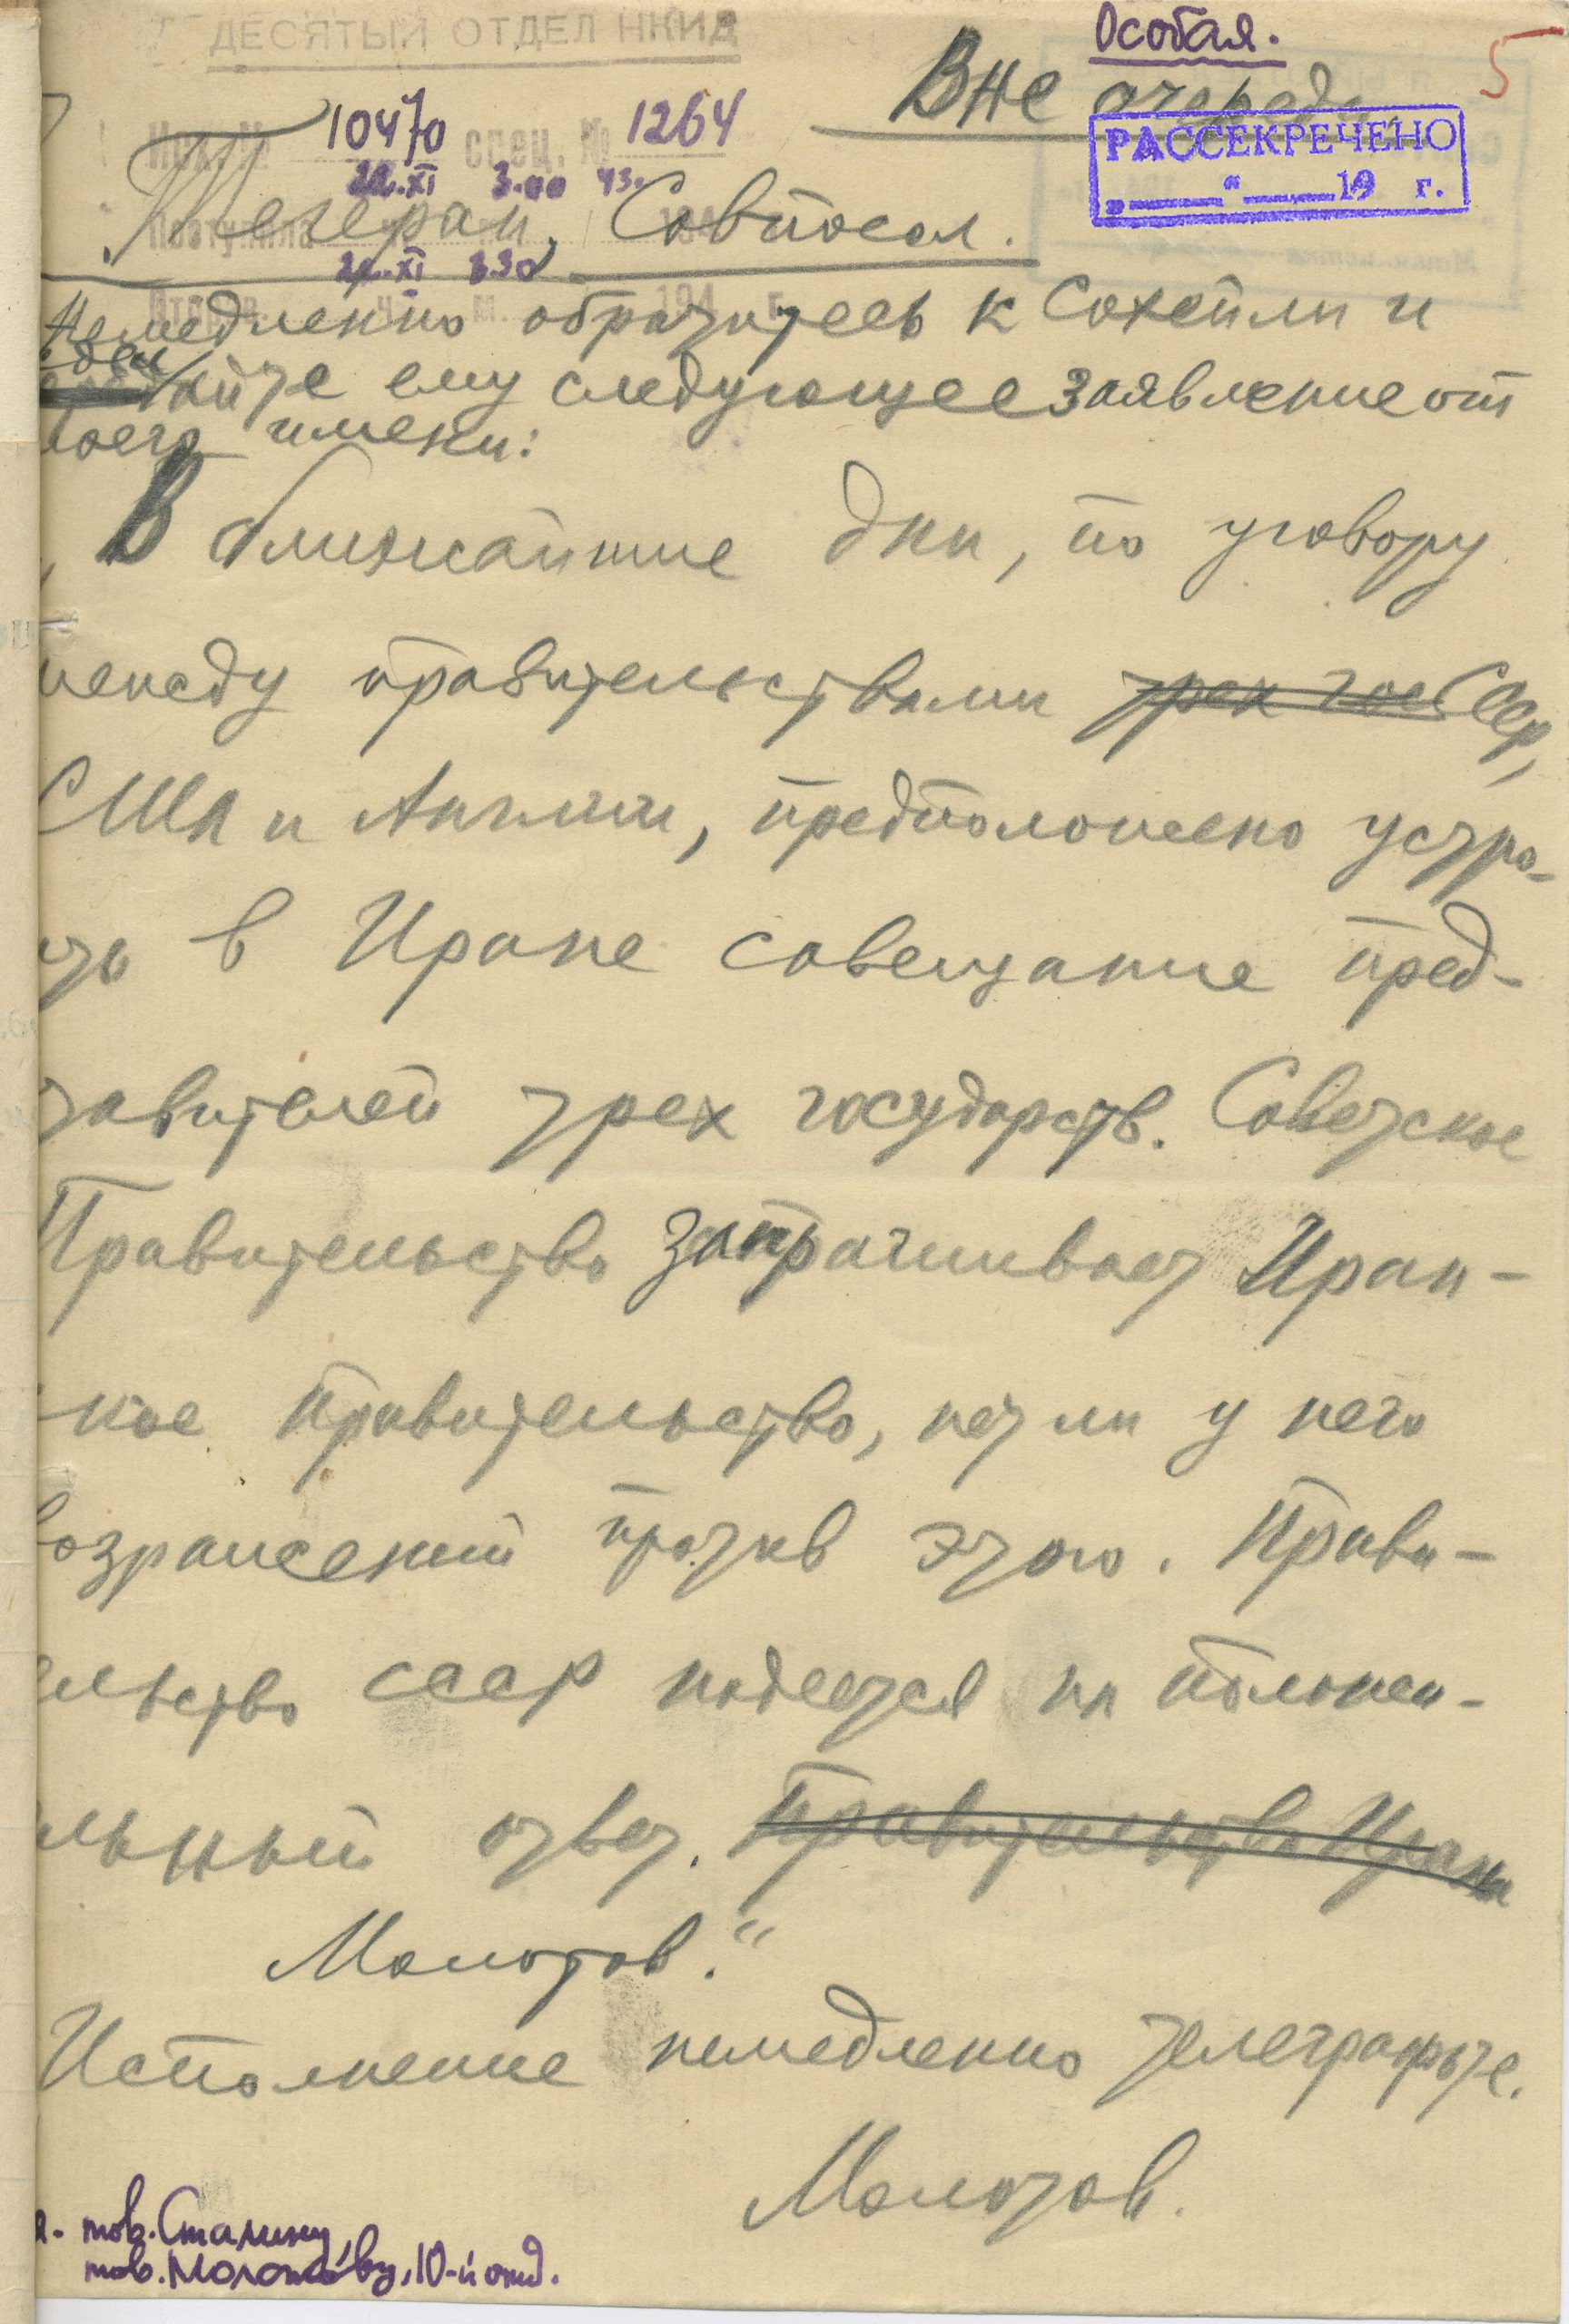 ДЕСЯТЫЙ ОТДЕЛ НКИД
Особая.
5
Вне очереди
Исх. № 10470 спец. № 1264
РАССЕКРЕЧЕНО
„ “ 19 г.
XI 3.00 43.
Поступила
Тегеран, Совпосол.
XI 3.30
194 г.
Немедленно обратитесь к Сохейли и
айте ему следующее заявление от
моего имени:
„В ближайшие дни, по уговору
между правительствами трех гос СССР,
США и Англии, предположено устро-
ить в Иране совещание пред-
тавителей трех государств. Советское
Правительство запрашивает Иран-
ское правительство, нет ли у него
возражений против этого. Прави-
ельство СССР надеется на положи-
льный ответ. Правительство Ирана
Молотов.“
Исполнение немедленно телеграфьте.
Молотов.
тов. Сталину,
тов. Молотову, 10-й отд.